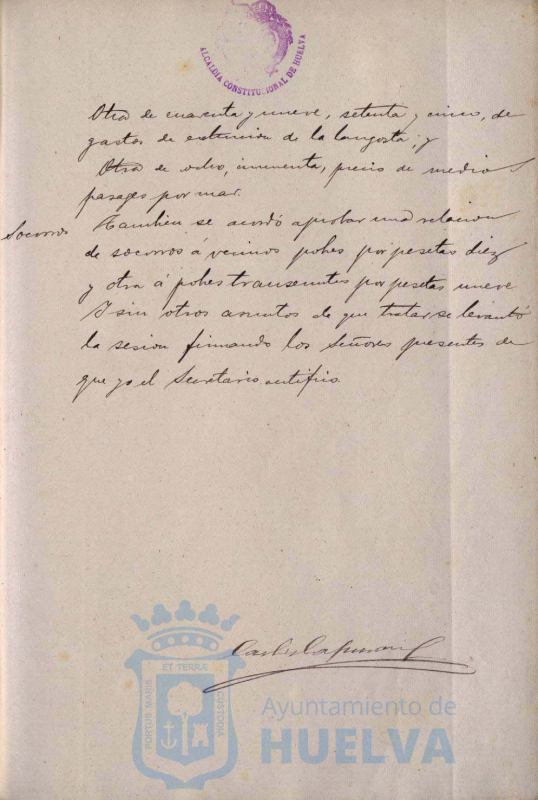 ALCALDIA CONSTITUCIONAL DE HUELVA
Otra de cuarenta y nueve, setenta y cinco, de
gastos de extincion de la langosta; y
Otra de ocho, cincuenta, precio de medios
pasages por mar.
Socorros
Tambien se acordó aprobar una relacion
de socorros á vecinos pobres por pesetas diez
y otra á pobres transeuntes por pesetas nueve
I sin otros asuntos de que tratar se levantó
la sesion firmando los Señores presentes de
que yo el Secretario certifico.
PORTUS MARIS
ET TERRÆ
CUSTODIA
Ayuntamiento de
HUELVA